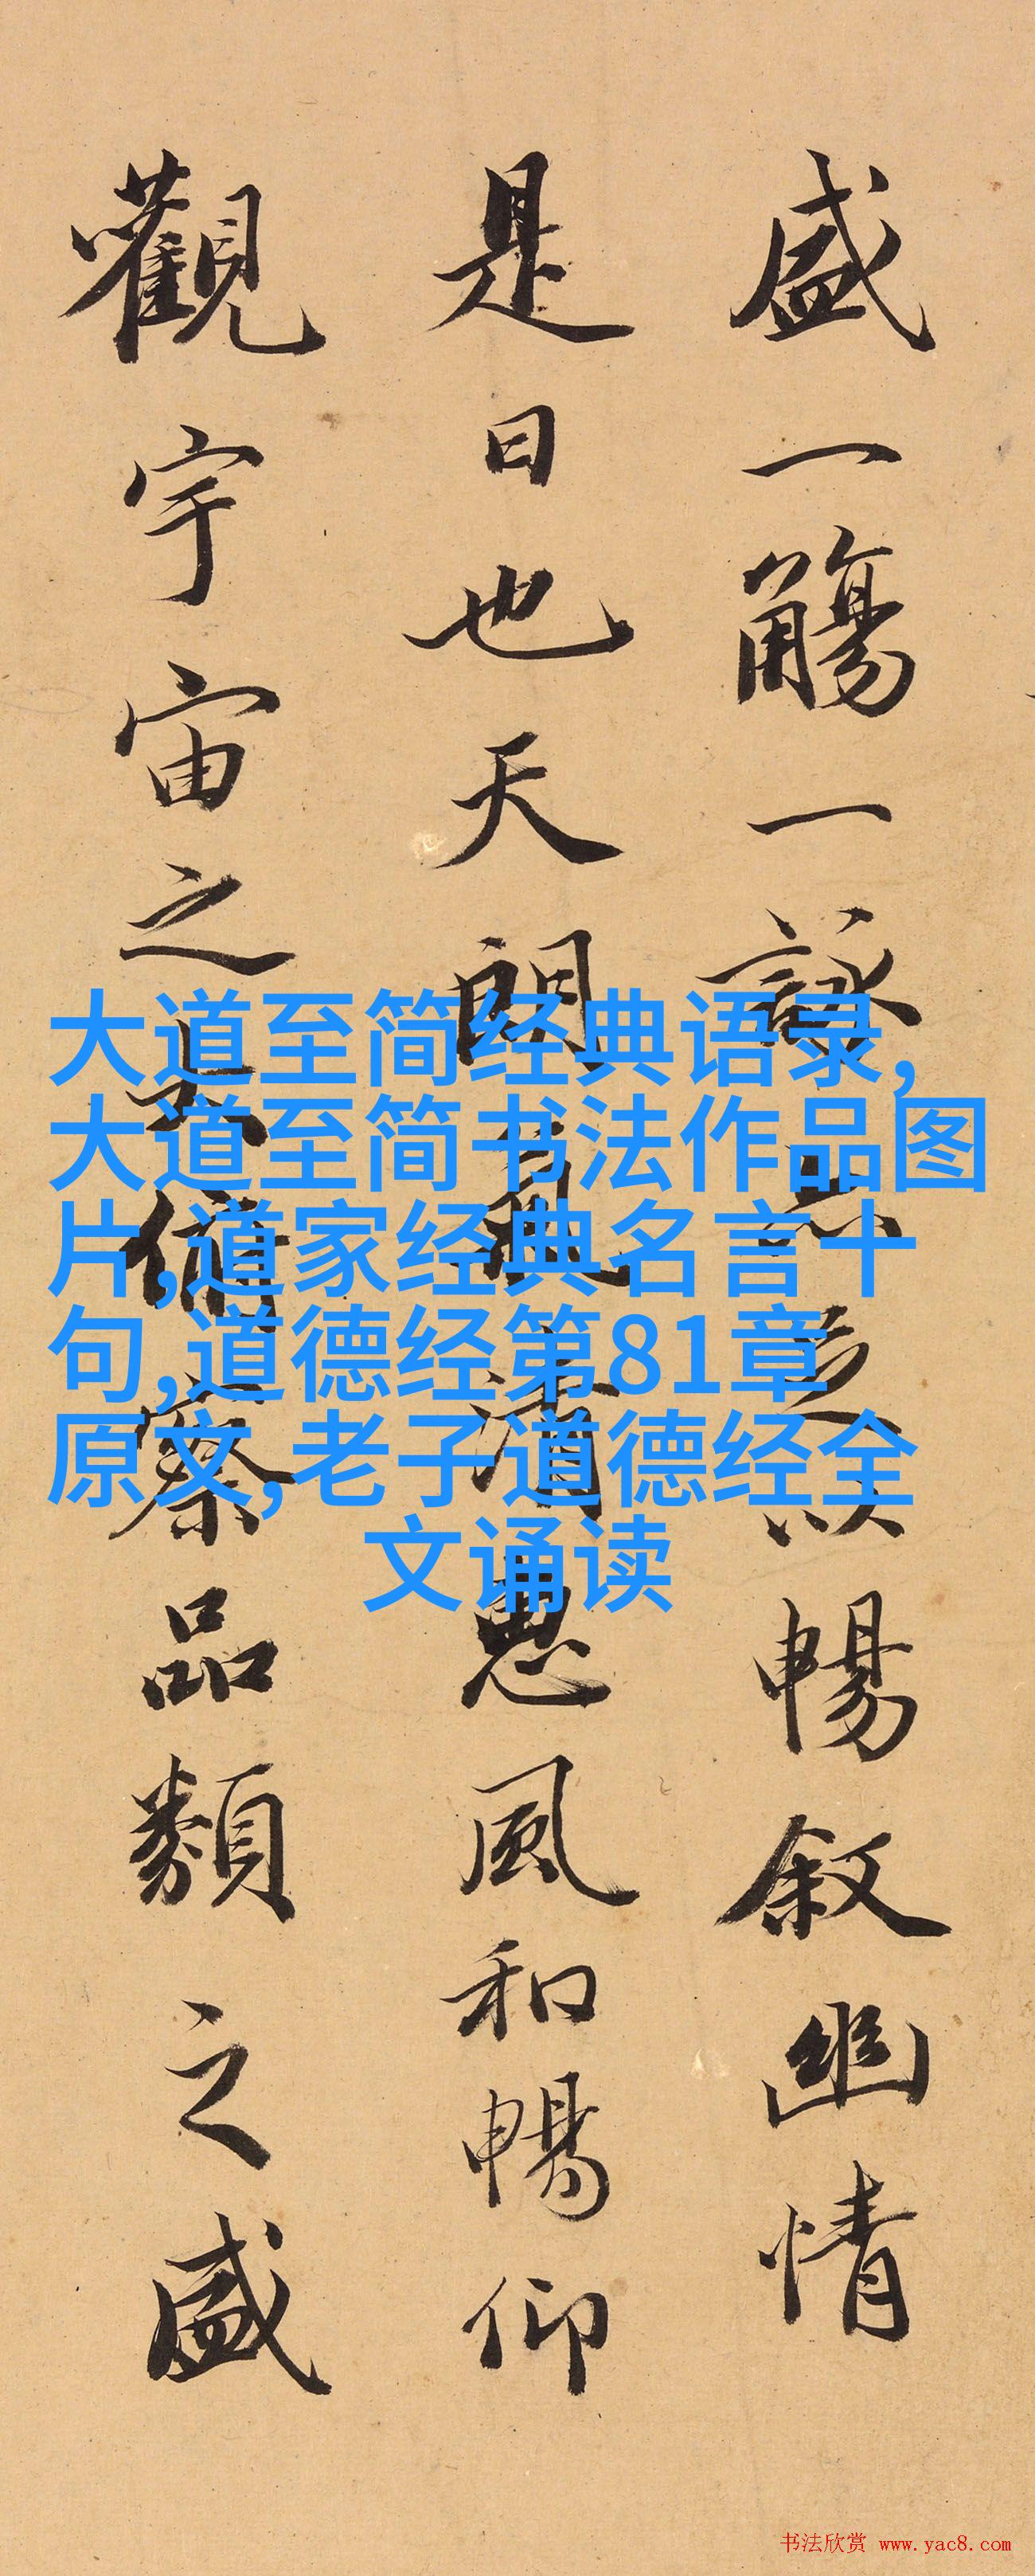 盛一觴一詠亦足以暢叙幽情
是日也天朗氣清惠風和暢仰
觀宇宙之大俯察品類之盛
大道至简经典语录,
大道至简书法作品图
片,道家经典名言十
句,道德经第81章
原文,老子道德经全
文诵读
书法欣赏 www.yac8.com